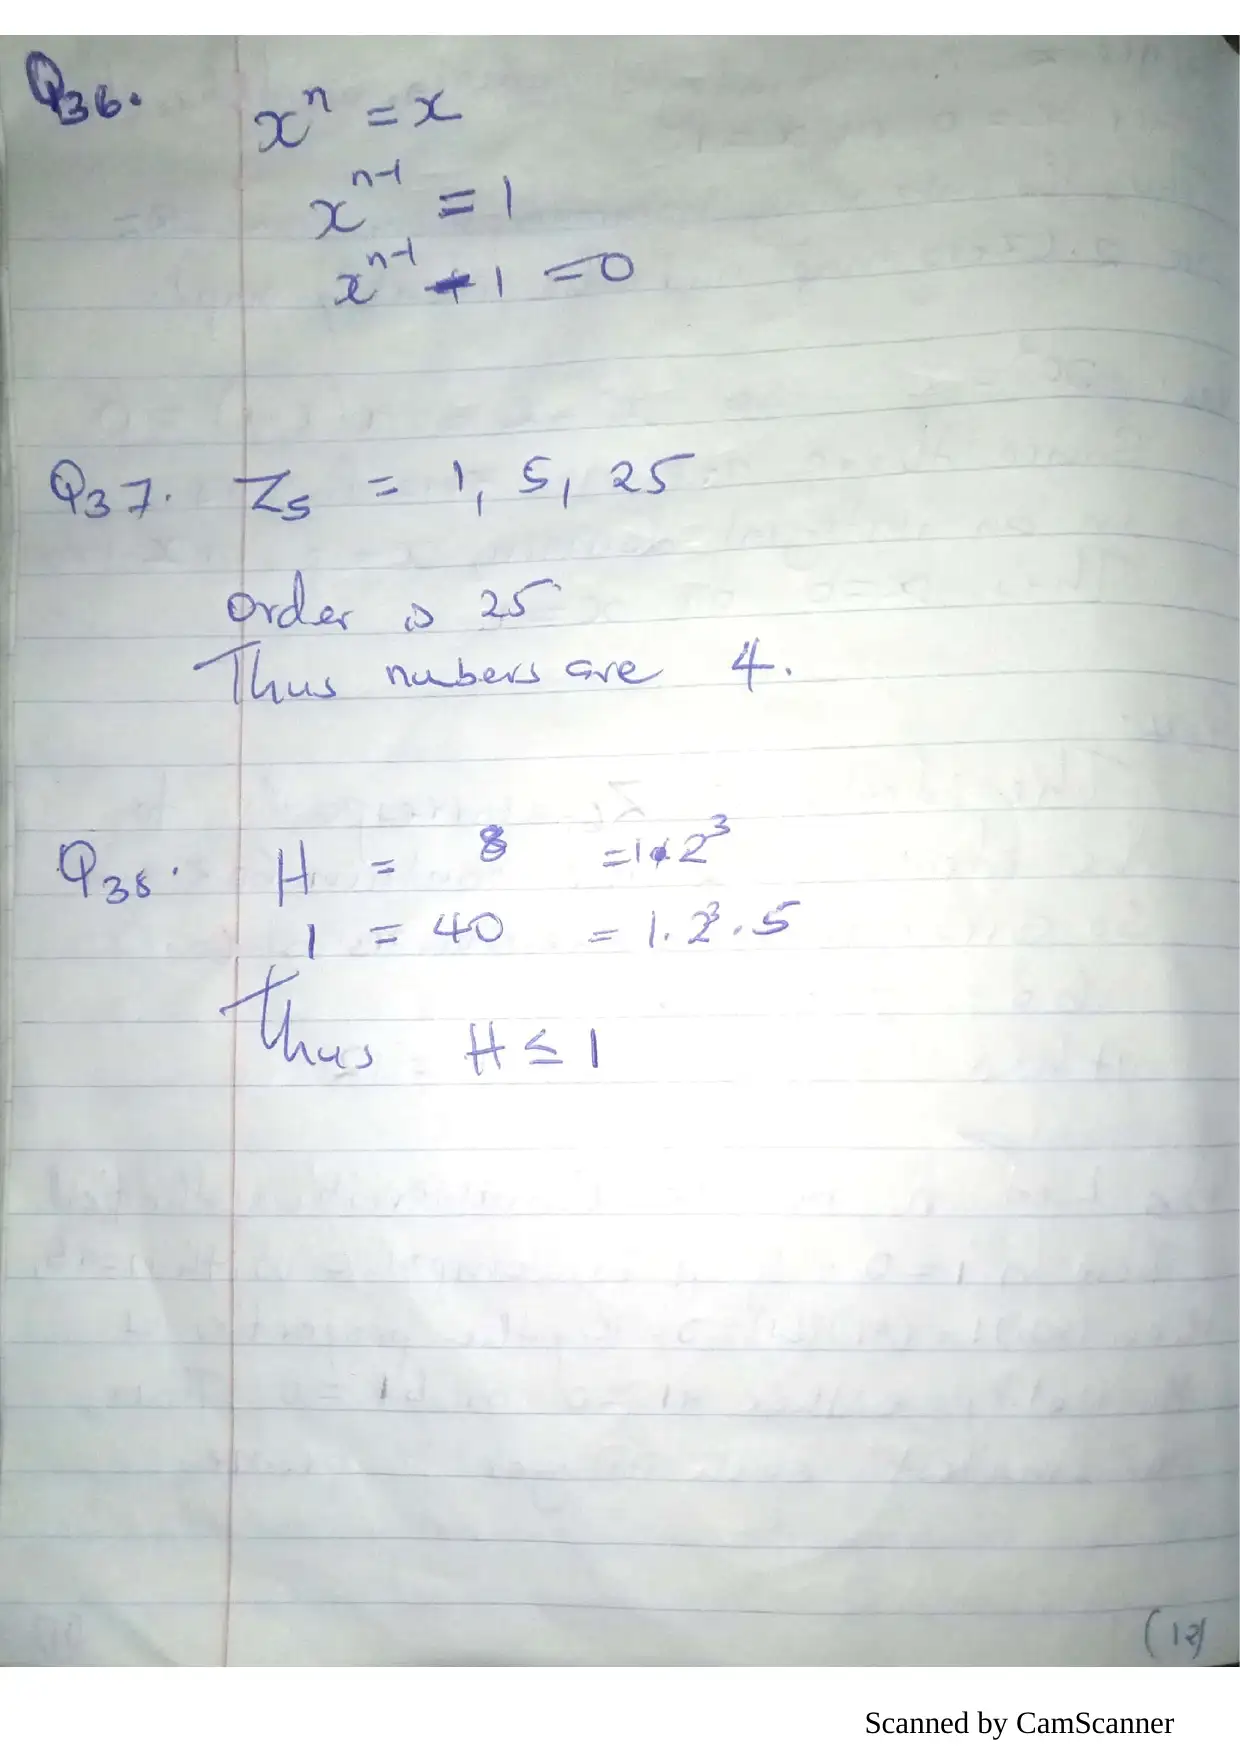 Q36. xⁿ = x
xⁿ⁻¹ = 1
xⁿ⁻¹ - 1 = 0
Q37. Z₅ = 1, 5, 25
order is 25
Thus nubers are 4.
Q38. H = 8 = 1·2³
1 = 40 = 1.2³.5
Thus H ≤ 1
(12)
Scanned by CamScanner